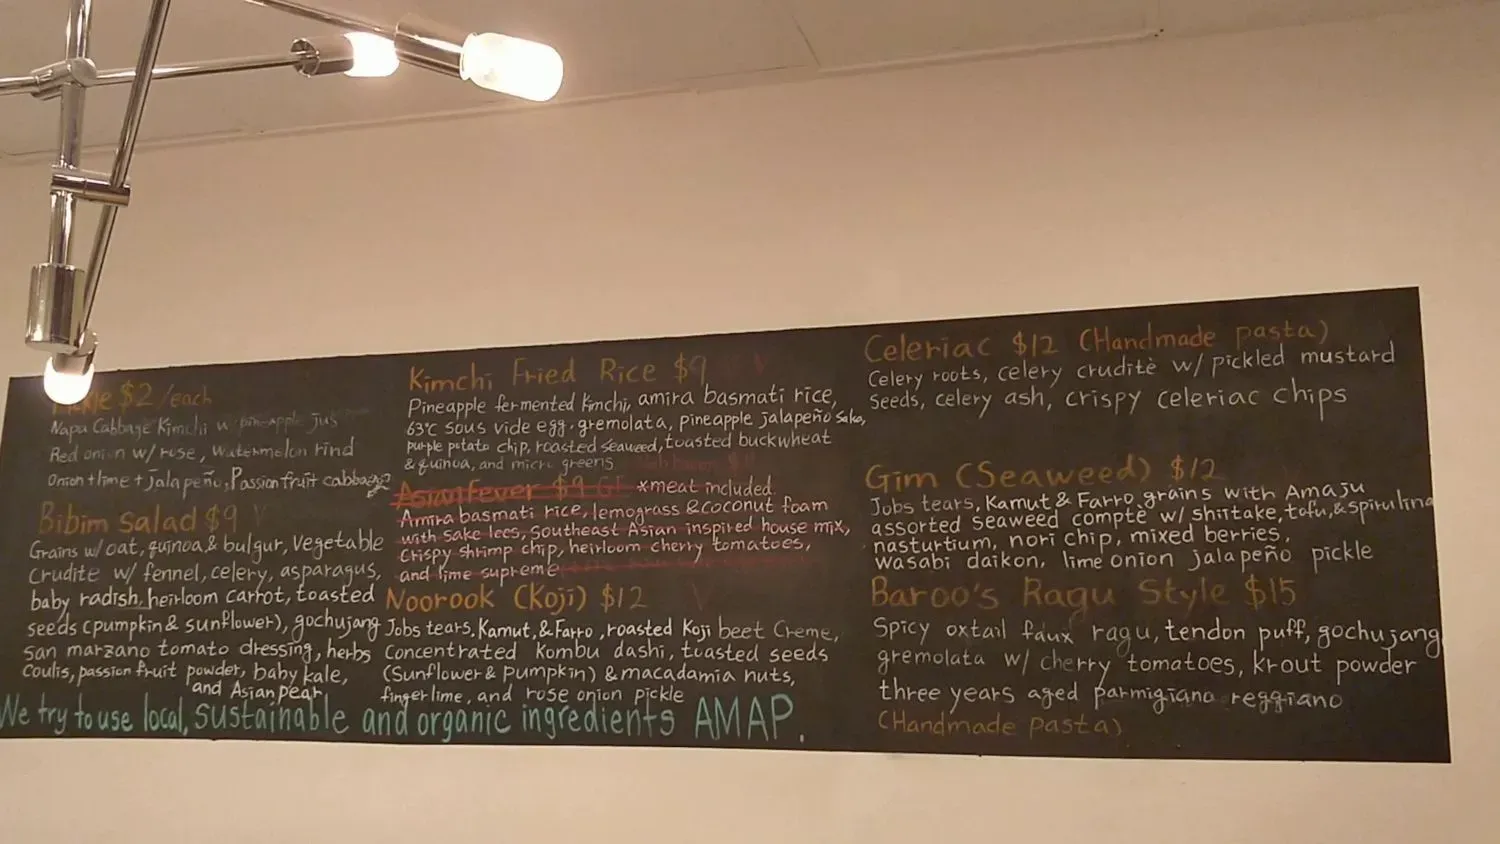 $2 /each
Napa Cabbage Kimchi w/ pineapple jus
Red onion w/ rose, watermelon rind
Onion + lime + jalapeño, Passion fruit cabbage
Bibim Salad $9
Grains w/ oat, quinoa, & bulgur, vegetable
Crudite w/ fennel, celery, asparagus,
baby radish, heirloom carrot, toasted
seeds (pumpkin & sunflower), gochujang
san marzano tomato dressing, herbs
Coulis, passion fruit powder, baby kale,
and Asian pear
Kimchi Fried Rice $9
Pineapple fermented Kimchi, amira basmati rice,
63°C sous vide egg, gremolata, pineapple jalapeño salsa,
purple potato chip, roasted seaweed, toasted buckwheat
& quinoa, and micro greens
Asian Fever $9 GF *meat included
Amira basmati rice, lemograss & coconut foam
with sake lees, Southeast Asian inspired house mix,
crispy shrimp chip, heirloom cherry tomatoes,
and lime supreme
Noorook (Koji) $12
Jobs tears, Kamut, & Farro, roasted Koji beet Creme,
Concentrated Kombu dashi, toasted seeds
(Sunflower & Pumpkin) & macadamia nuts,
finger lime, and rose onion pickle
Celeriac $12 (Handmade pasta)
Celery roots, celery cruditè w/ pickled mustard
seeds, celery ash, crispy celeriac chips
Gim (Seaweed) $12
Jobs tears, Kamut & Farro grains with Amaju
assorted seaweed comptè w/ shiitake, tofu, & spirulina
nasturtium, nori chip, mixed berries,
wasabi daikon, lime onion jalapeño pickle
Baroo's Ragu Style $15
Spicy oxtail faux ragu, tendon puff, gochujang
gremolata w/ cherry tomatoes, krout powder
three years aged parmigiano reggiano
(Handmade pasta)
We try to use local, sustainable and organic ingredients AMAP.